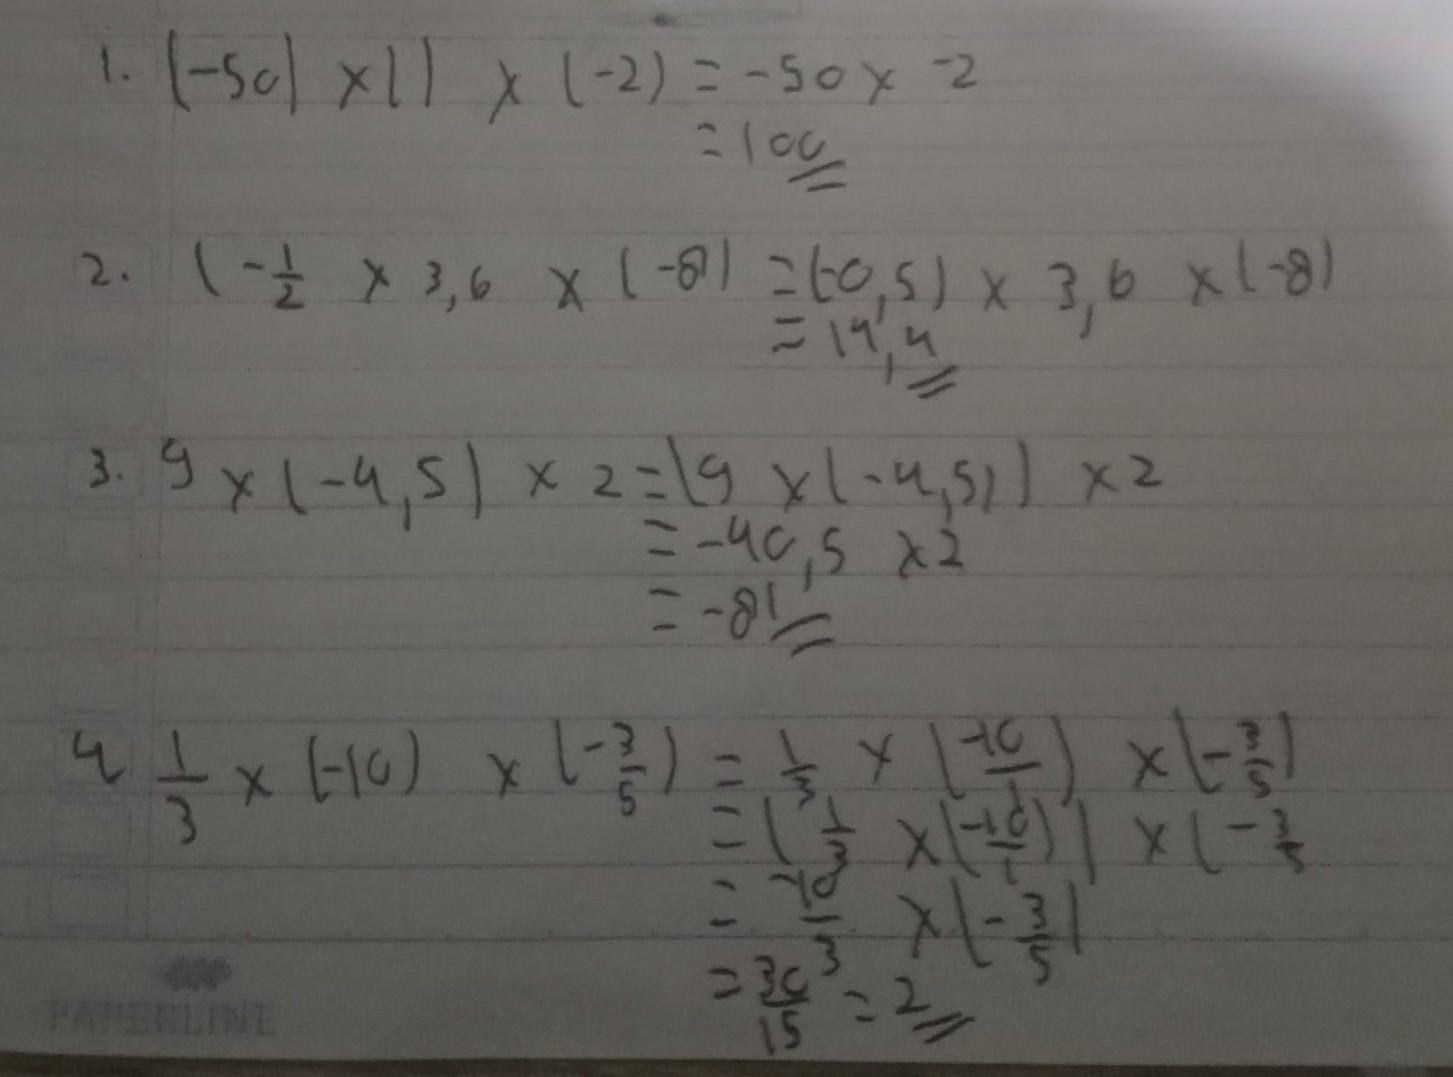 1. (-50) x 1) x (-2) = -50 x -2
= 100
2. (-1/2 x 3,6 x (-8) = (-0,5) x 3,6 x (-8)
= 14,4
3. 9 x (-4,5) x 2 = (9 x (-4,5)) x 2
= -40,5 x 2
= -81
4 1/3 x (-10) x (-3/5) = 1/3 x (-10/1) x (-3/5)
= (1/3 x (-10/1)) x (-3/5
= -10/3 x (-3/5)
= 30/15 = 2
PAPERLINE